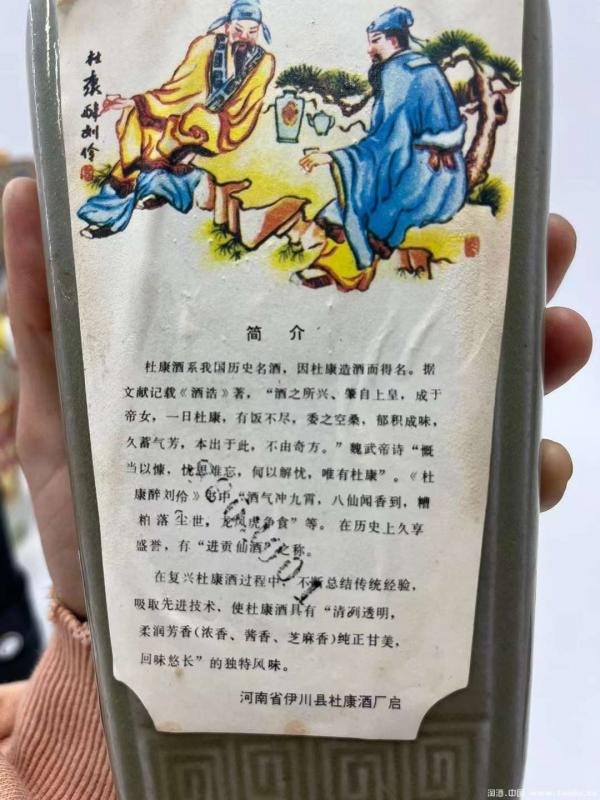 杜康醉刘伶
简 介
杜康酒系我国历史名酒，因杜康造酒而得名。据
文献记载《酒浩》著，“酒之所兴、肇自上皇，成于
帝女，一曰杜康，有饭不尽，委之空桑，郁积成味，
久蓄气芳，本出于此，不由奇方。”魏武帝诗“慨
当以慷，忧思难忘，何以解忧，唯有杜康”。《杜
康醉刘伶》书中“酒气冲九霄，八仙闻香到，糟
粕落尘世，龙凤虎争食”等。在历史上久享
盛誉，有“进贡仙酒”之称。
在复兴杜康酒过程中，不断总结传统经验，
吸取先进技术、使杜康酒具有“清冽透明，
柔润芳香(浓香、酱香、芝麻香)纯正甘美，
回味悠长”的独特风味。
河南省伊川县杜康酒厂启